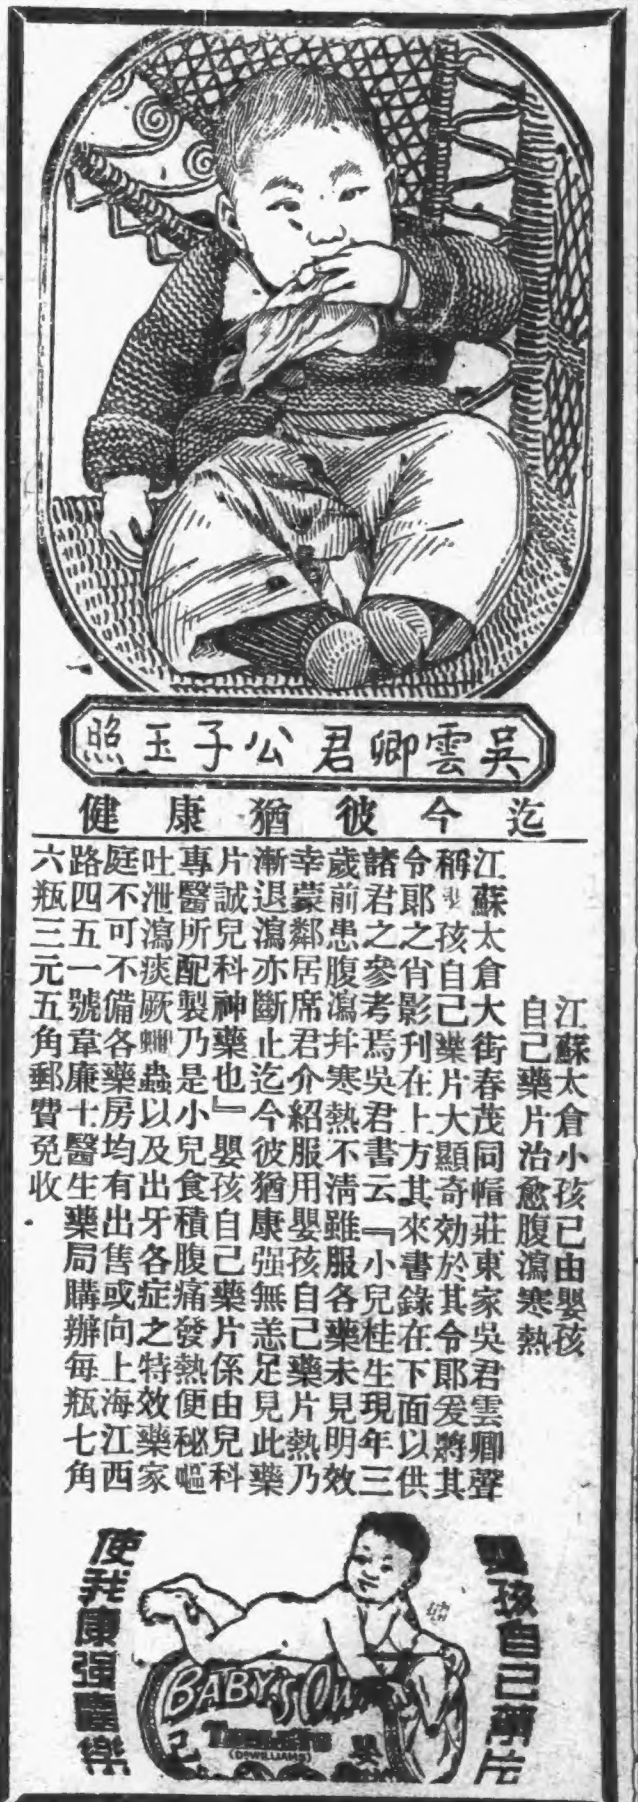 吳雲卿君公子玉照
迄今彼猶康健
江蘇太倉小孩已由嬰孩
自己藥片治愈腹瀉寒熱
江蘇太倉大街春茂同帽莊東家吳君雲卿聲
稱嬰孩自己藥片大顯奇効於其令郎爰將其
令郎之肖影刊在上方其來書錄在下面以供
諸君之參考焉吳君書云『小兒桂生現年三
歲前患腹瀉幷寒熱不清雖服各藥未見明效
幸蒙鄰居席君介紹服用嬰孩自己藥片熱乃
漸退瀉亦斷止迄今彼猶康强無恙足見此藥
片誠兒科神藥也』嬰孩自己藥片係由兒科
專醫所配製乃是小兒食積腹痛發熱便秘嘔
吐泄瀉痰厥蟲以及出牙各症之特效藥家
庭不可不備各藥房均有出售或向上海江西
路四五一號韋廉士醫生藥局購辦每瓶七角
六瓶三元五角郵費免收
嬰孩自己藥片
BABY'S OWN
TABLETS
(DR WILLIAMS)
嬰
己
使我康强喜樂